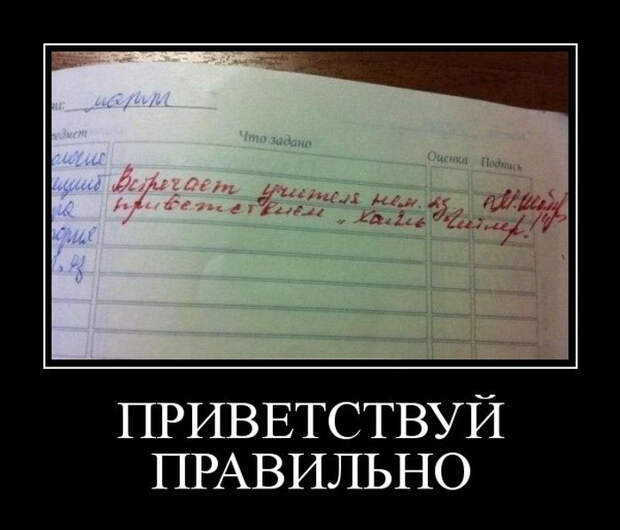 март
Что задано
Оценка Подпись
Встречает учителя нем. яз
приветствием „Хайль Гитлер!"
ПРИВЕТСТВУЙ
ПРАВИЛЬНО